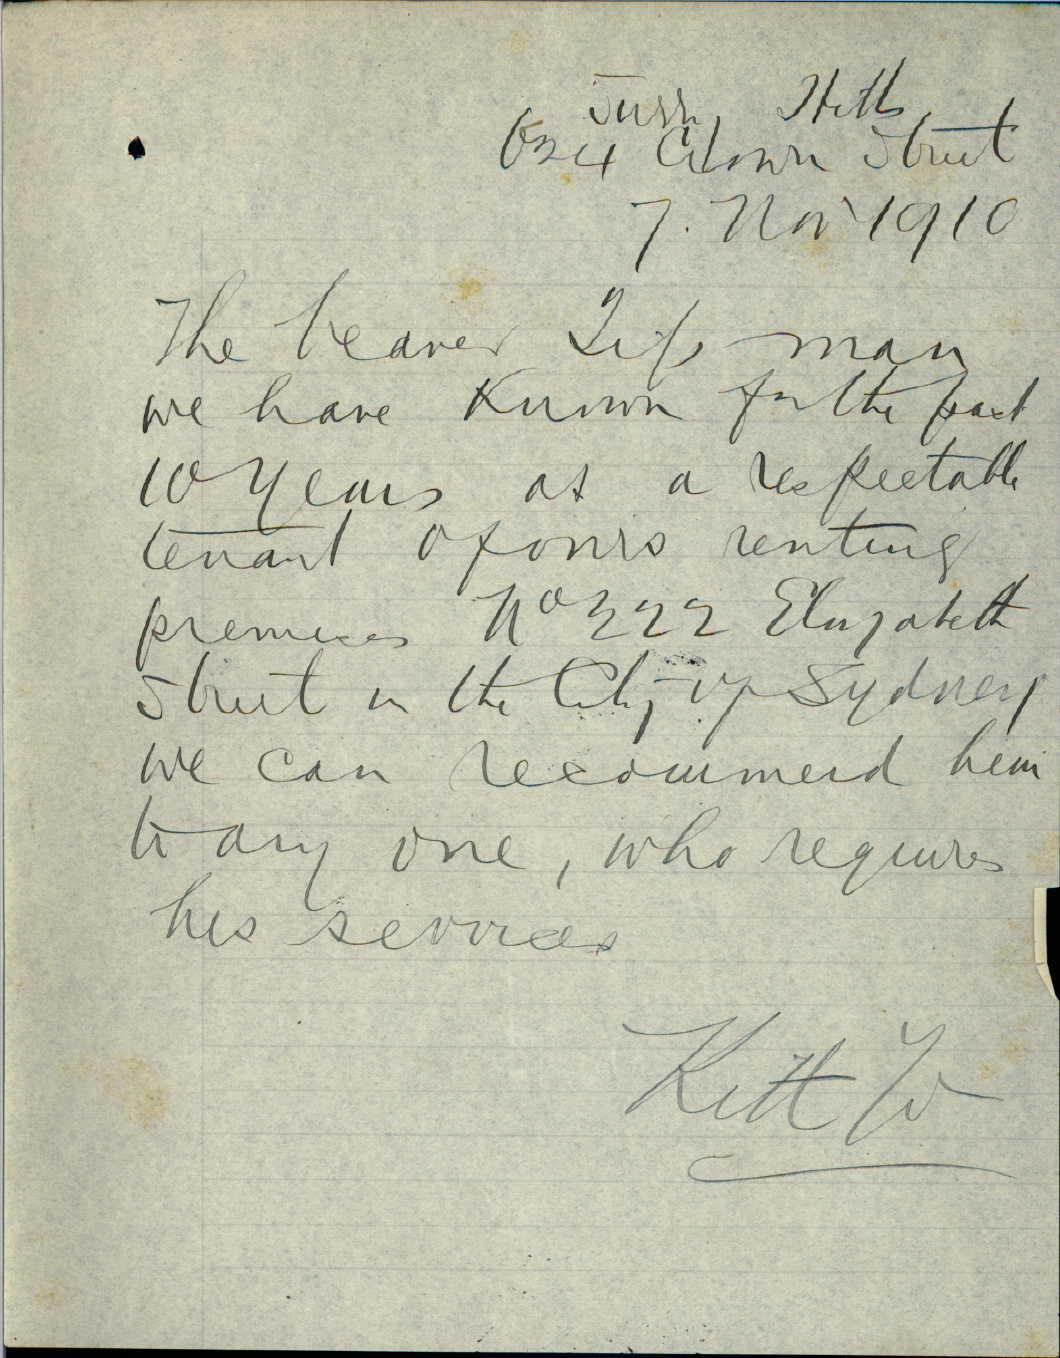 Surry Hills
624 Crown Street
7. Nov 1910
The bearer man
we have Known for the past
10 Years as a respectable
tenant of ours renting
premises No 222 Elizabeth
Street in the City of Sydney
we can recommend him
to any one, who requires
his services
Kitt